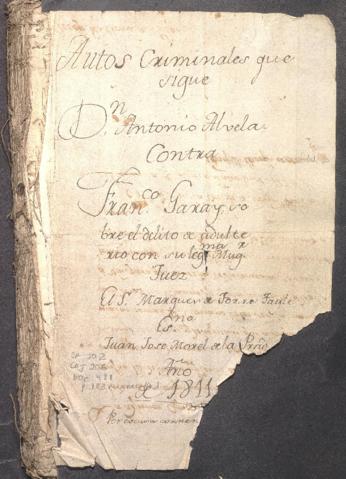 Autos Criminales que
sigue
Dn. Antonio Alvela
Contra
Franco. Garay so
bre el delito de adulte
rio con su legma. Mugr.
Juez
El Sr. Marques de Torre Tagle
Juan Jose Morel de la Prda
Año
de 1811